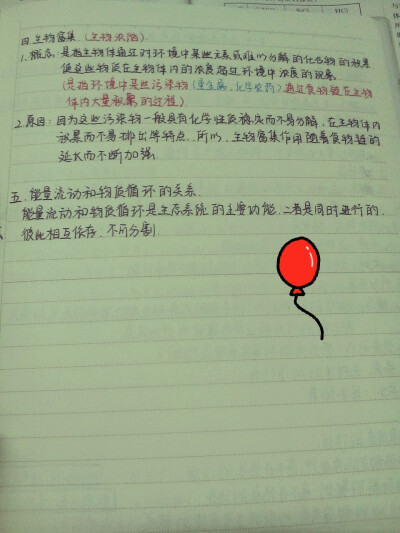 四.生物富集.(生物浓缩)
1.概念:是指生物体通过对环境中某些元素或难以分解的化合物的积累
使这些物质在生物体内的浓度超过环境中浓度的现象.
(是指环境中某些污染物(重金属,化学农药)通过食物链在生物
体内大量积累的过程)
2.原因:因为这些污染物一般具有化学性质稳定而不易分解,在生物体内
积累而不易排出等特点.所以,生物富集作用随着食物链的
延长而不断加强.
五.能量流动和物质循环的关系.
能量流动和物质循环是生态系统的主要功能.二者是同时进行的.
彼此相互依存,不可分割.